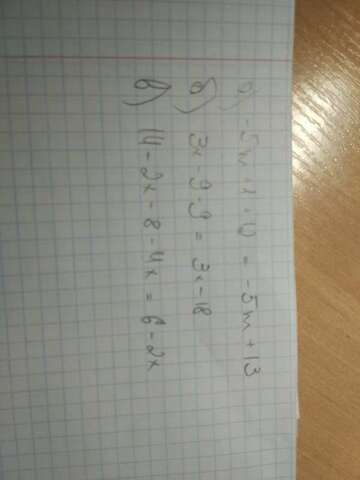 а) -5m + 1 + 12 = -5m + 13
б) 3x - 9 - 9 = 3x - 18
в) 14 - 2x - 8 - 4x = 6 - 2x